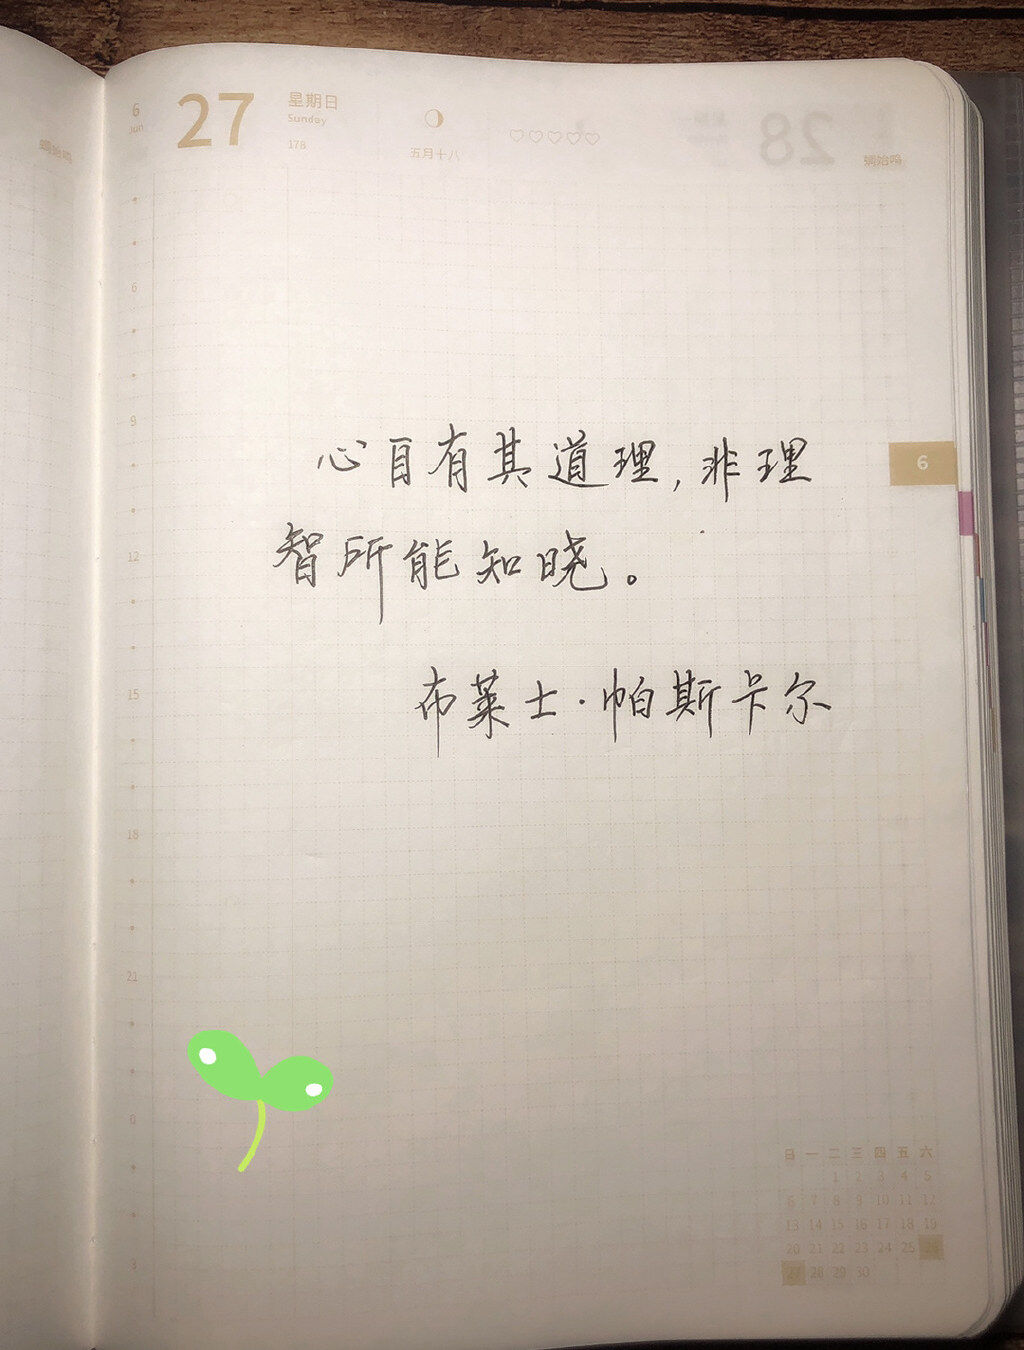 6
Jun
27
星期日
Sunday
178
五月十八
28
蜩始鸣
蜩始鸣
6
9
12
15
18
21
0
3
6
心自有其道理,非理
智所能知晓。
布莱士·帕斯卡尔
日 一 二 三 四 五 六
1 2 3 4 5
6 7 8 9 10 11 12
13 14 15 16 17 18 19
20 21 22 23 24 25 26
27 28 29 30